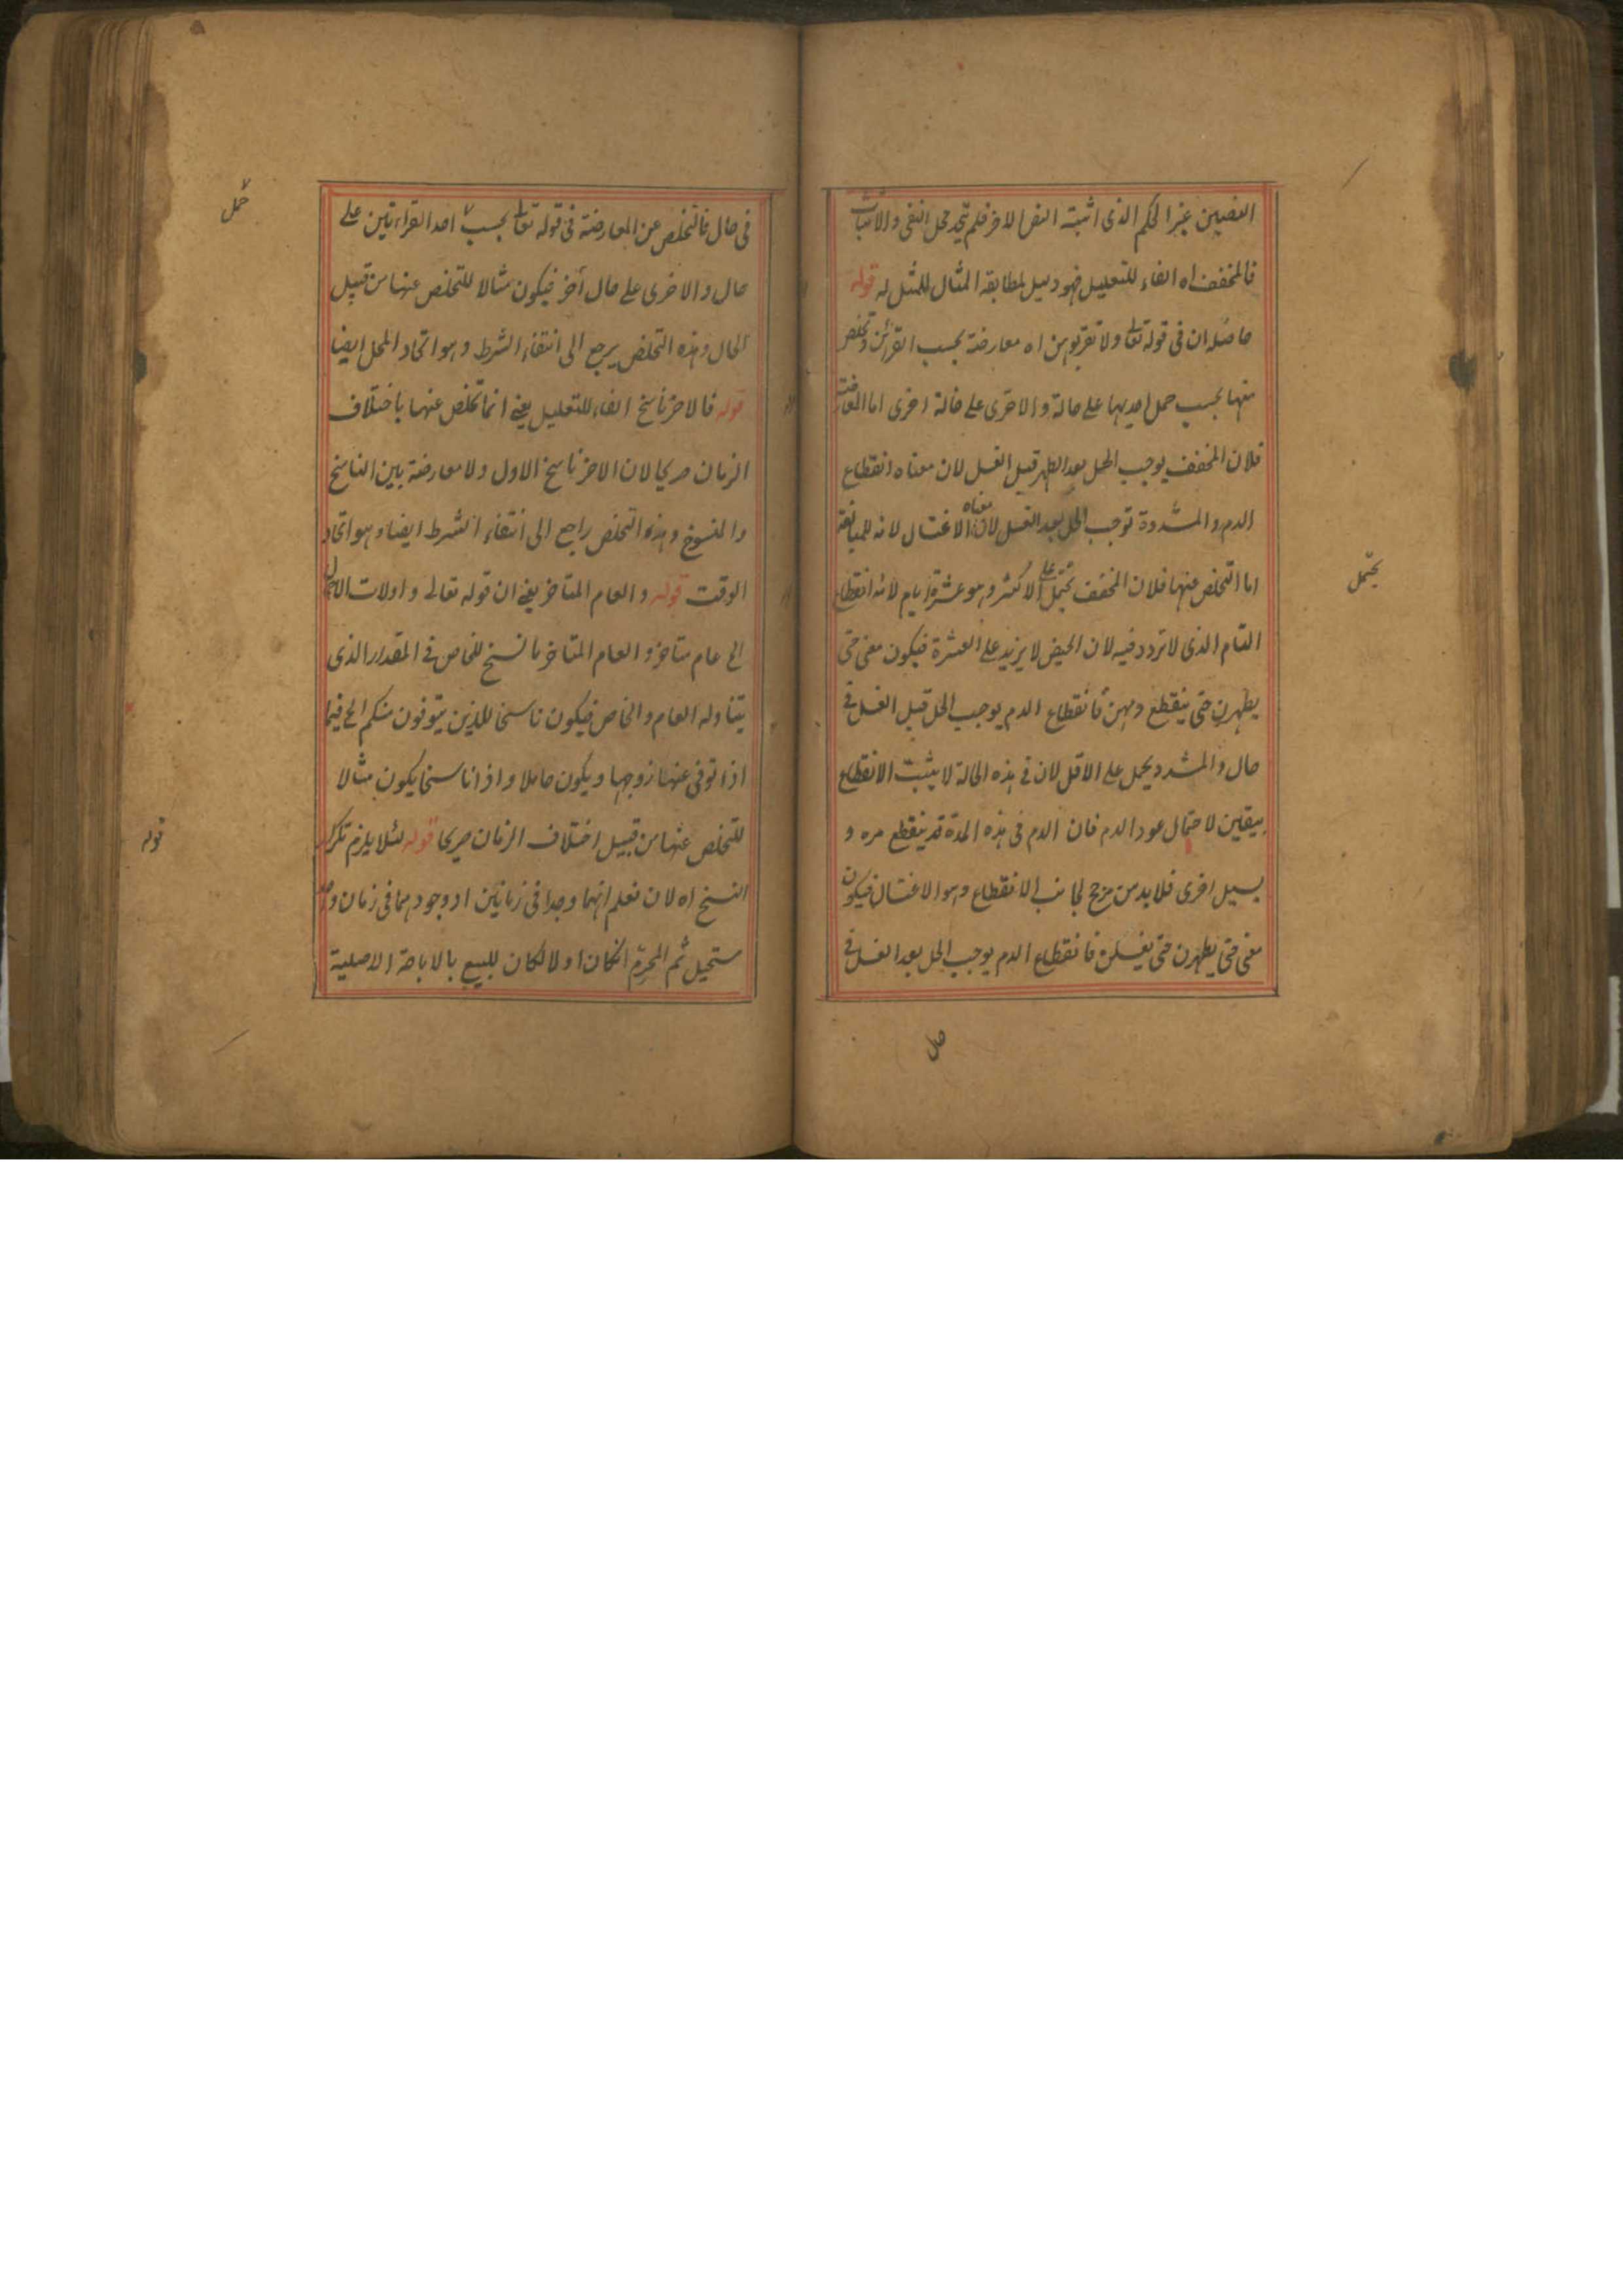 النصين غير الحكم الذى اثبته النص الاخر فلم يتحد محل النفى والاثبات
فالمخفف اه الفاء للتعليل فهو دليل لمطابقة المثال للمثل له قوله
حاصله ان فى قوله تعا ولا تقربوهن اه معارضة بحسب القرائتين وتخلص
عنها بحسب حمل احديها على حالة والاخرى على حالة اخرى اما المعارضة
فلان المخفف يوجب الحل بعد الطهر قبل الغسل لان معناه انقطاع
الدم والمشددة توجب الحل بعد الغسل لان معناه الاغتسال لانه للمبالغة
اما التخلص عنها فلان المخفف يحتمل على الاكثر وهو عشرة ايام لانه انقطاع
التام الذى لا تردد فيه لان الحيض لا يزيد على العشرة فيكون معنى حتى
يطهرن حتى ينقطع دمهن فانقطاع الدم يوجب الحل قبل الغسل فى
حال والمشدد يحمل على الاقل لان فى هذه الحالة لا يثبت الانقطاع
بيقين لاحتمال عود الدم فان الدم فى هذه المدة قد ينقطع مره و
يسيل اخرى فلا بد من مرجح لجانب الانقطاع وهو الاغتسال فيكون
معنى حتى يطهرن حتى يغتسلن فانقطاع الدم يوجب الحل بعد الغسل فى
يحتمل
حال
فى حال فالتخلص عن المعارضة فى قوله تعا بحسب احد القراءتين على
حمل
حال والاخرى على حال أخر فيكون مثالا للتخلص عنها من قبيل
الحال وهذه التخلص يرجع الى انتفاء الشرط وهو اتحاد المحل ايضا
قوله فالاخر ناسخ الفاء للتعليل يعنى انما تخلص عنها باختلاف
الزمان صريحا لان الاخر ناسخ الاول ولا معارضة بين الناسخ
والمنسوخ وهذه التخلص راجع الى انتفاء الشرط ايضا وهو اتحاد
الوقت قوله والعام المتاخر يعنى ان قوله تعالى واولات الاحمال
الخ عام متاخر والعام المتاخر ناسخ للخاص فى المقدار الذى
يتناوله العام والخاص فيكون ناسخا للذين يتوفون منكم الخ فيما
اذا توفى عنها زوجها ويكون حاملا واذا ناسخا يكون مثالا
للتخلص عنها من قبيل اختلاف الزمان صريحا قوله لئلا يلزم تكرار
قوله
النسخ اه لان نعلم انهما وجدا فى زمانين اذ وجودهما فى زمان واحد
مستحيل ثم المحرم انكان اولا لكان للمبيح بالاباحة الاصلية